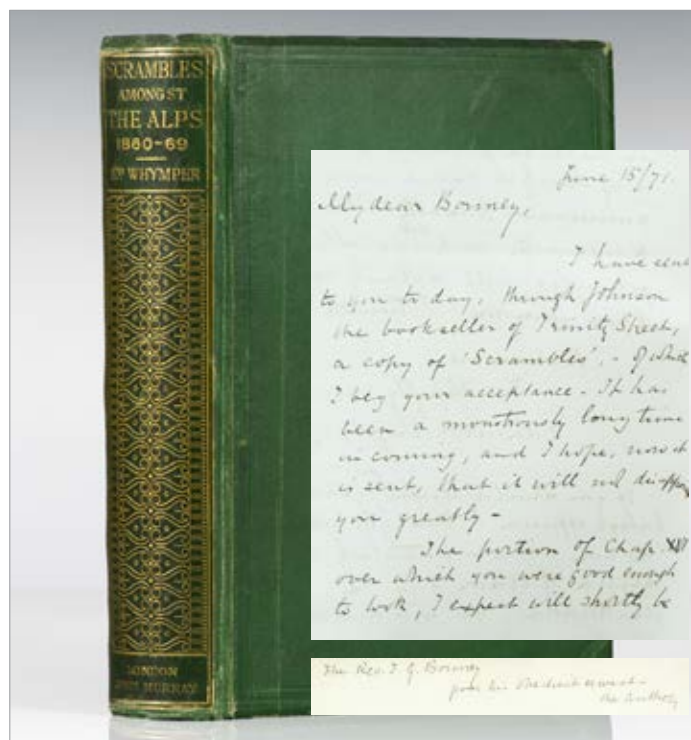 SCRAMBLES
AMONGST
THE ALPS
1860-69
ED WHYMPER
LONDON
JOHN MURRAY
June 15/71.
My dear Bonney,
I have sent
to you to day, through Johnson
the bookseller of Trinity Street,
a copy of 'Scrambles', - of which
I beg your acceptance. It has
been a monstrously long time
in coming, and I hope, now it
is sent, that it will not disappoint
you greatly -
The portion of Chap.
over which you were good enough
to look, I expect will shortly be
The Rev. T. G. Bonney
from his
the Author